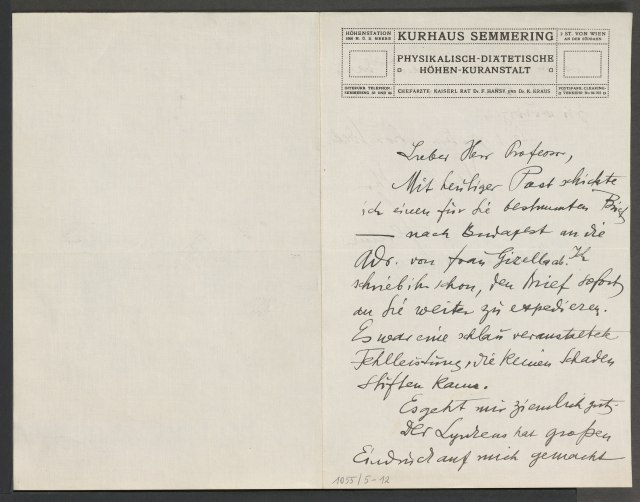 HÖHENSTATION
1000 M. Ü. D. MEERE
KURHAUS SEMMERING
2 ST. VON WIEN
AN DER SÜDBAHN
PHYSIKALISCH-DIÄTETISCHE
HÖHEN-KURANSTALT
INTERURB. TELEPHON:
SEMMERING
CHEFÄRZTE: KAISERL. RAT Dr. F. HANSY UND Dr. K. KRAUS
POSTSPARK. CLEARING-
VERKEHR
Lieber Herr Professor,
Mit heutiger Post schickte
ich einen für Sie bestimmten Brief
— nach Budapest an die
Adr. von Frau Gizella ab. Ich
schrieb ihr schon, den Brief sofort
an Sie weiter zu expedieren.
Es war eine schlau veranstaltete
Fehlleistung, die keinen Schaden
stiften kann.
Es geht mir ziemlich gut.
Der hat großen
Eindruck auf mich gemacht
1055/5-12